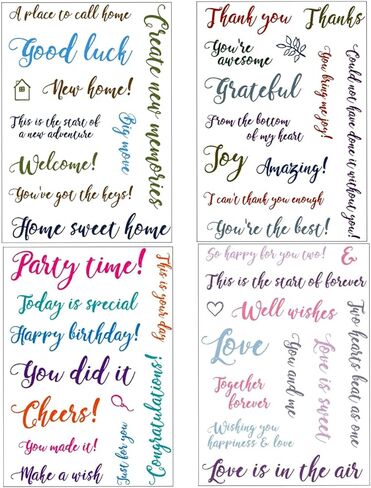 A place to call home
Good luck
New home!
This is the start of
a new adventure
Welcome!
You've got the keys!
Home sweet home
Big move
Create new memories
Thank you
Thanks
You're
awesome
Grateful
From the bottom
of my heart
Joy
Amazing!
I can't thank you enough
You're the best!
You bring me joy!
Could not have done it without you!
Party time!
Today is special
Happy birthday!
You did it
Cheers!
You made it!
Make a wish
Just for you
This is your day
Congratulations!
So happy for you two!
&
This is the start of forever
Well wishes
Love
Together
forever
Wishing you
happiness & love
Love is in the air
You and me
Love is sweet
Two hearts beat as one